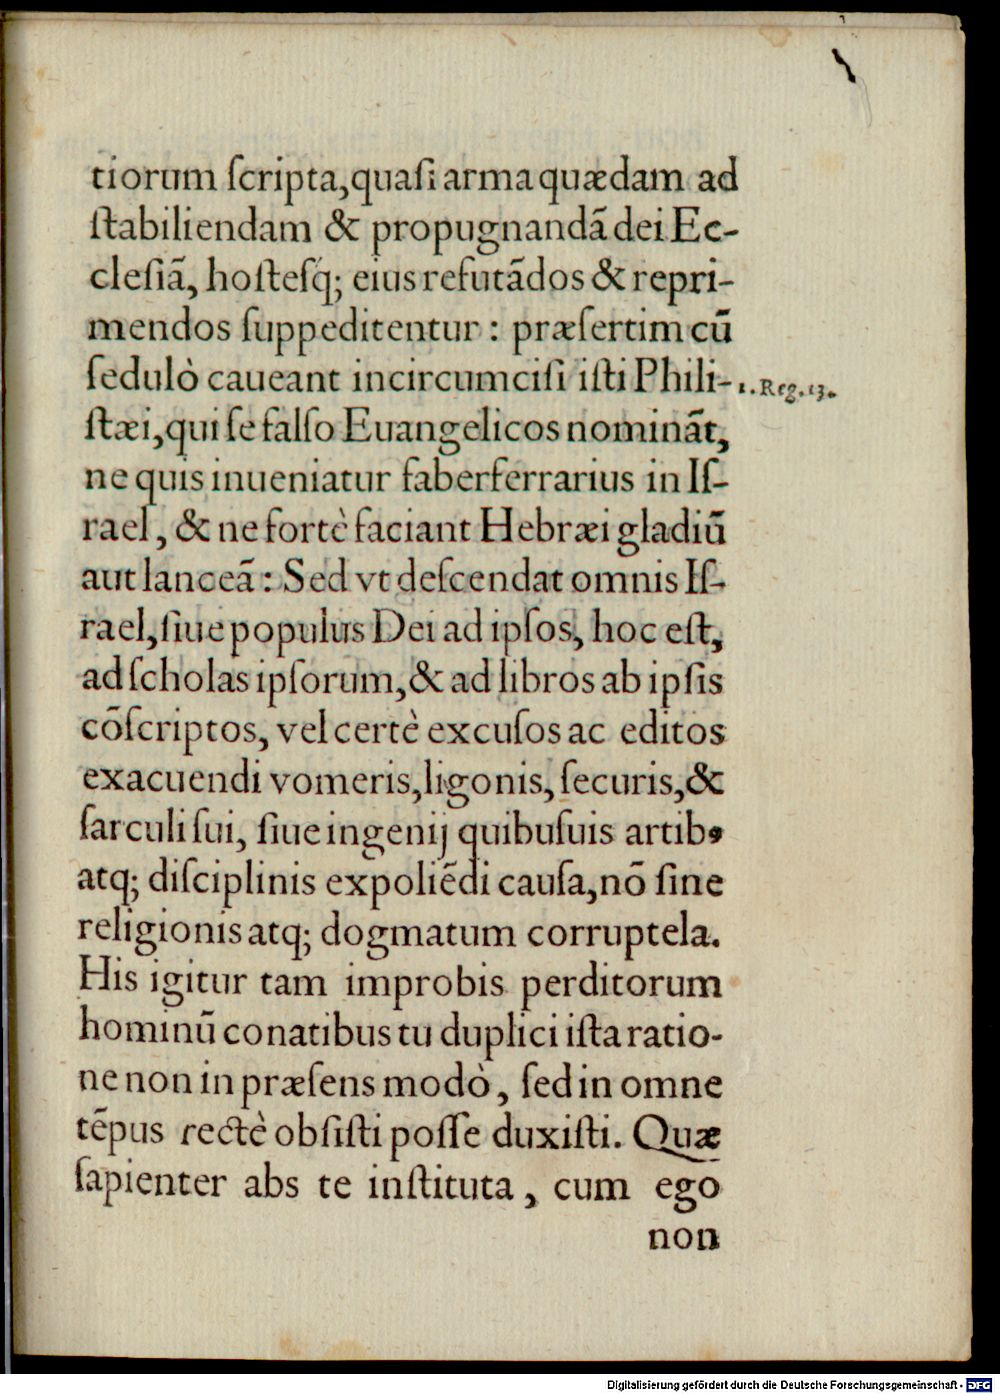 tiorum ſcripta,quaſi arma quædam ad
ſtabiliendam & propugnandã dei Ec-
cleſiã, hoſteſq́; eius refutãdos & repri-
mendos ſuppeditentur : præſertim cũ
ſedulò caueant incircumciſi iſti Phili-
1. Reg. 13.
ſtæi,qui ſe falſo Euangelicos nominãt,
ne quis inueniatur faber ferrarius in Iſ-
rael, & ne fortè faciant Hebræi gladiũ
aut lanceã : Sed vt deſcendat omnis Iſ-
rael,ſiue populus Dei ad ipſos, hoc eſt,
ad ſcholas ipſorum,& ad libros ab ipſis
cõſcriptos, vel certè excuſos ac editos
exacuendi vomeris,ligonis, ſecuris,&
ſarculi ſui, ſiue ingenij quibuſuis artibꝰ
atq; diſciplinis expoliẽdi cauſa,nõ ſine
religionis atq; dogmatum corruptela.
His igitur tam improbis perditorum
hominũ conatibus tu duplici iſta ratio-
ne non in præſens modò, ſed in omne
tẽpus rectè obſiſti poſſe duxiſti. Quæ
ſapienter abs te inſtituta, cum ego
non
Digitalisierung gefördert durch die Deutsche Forschungsgemeinschaft - DFG